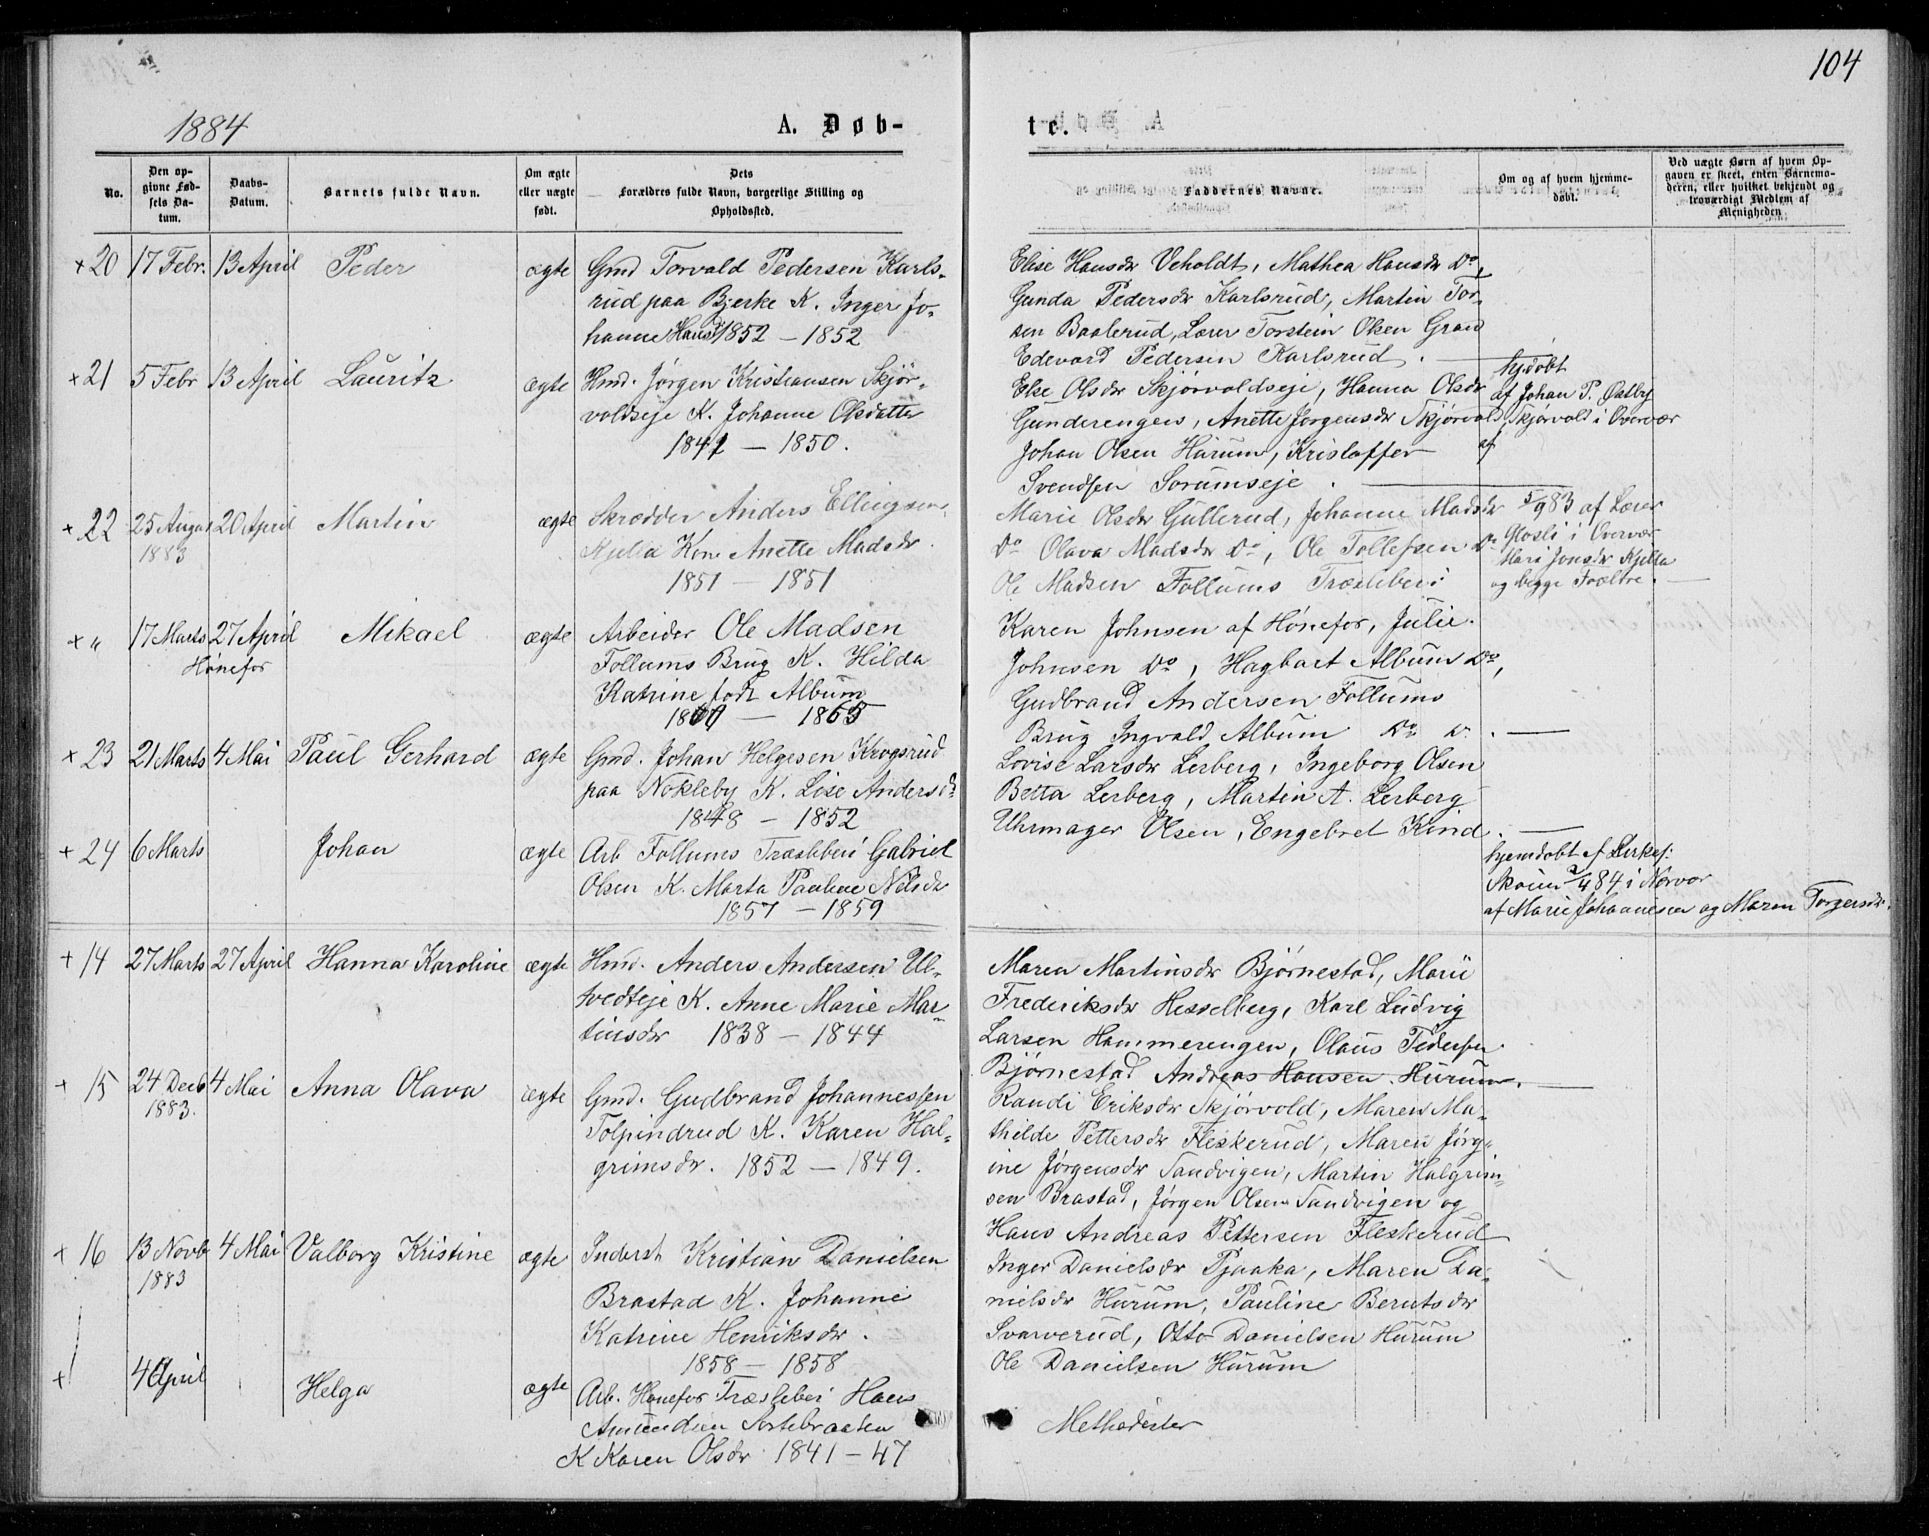 104
1884
A. Døb-
te.
No.
Den op-
givne Fød-
sels Da-
tum.
Daabs-
Datum.
Barnets fulde Navn.
Om ægte
eller uægte
født.
Dets
Forældres fulde Navn, borgerlige Stilling og
Opholdssted.
Faddernes Navne.
Om og af hvem hjemme-
døbt.
Ved uægte Børn af hvem Op-
gaven er skeet, enten Barnemo-
deren, eller hvilket bekjendt og
troværdigt Medlem af
Menigheden
+ 20 17 Febr. 13 April Peder ægte Gmd Torvald Pedersen Karls-
rud paa Bjerke K. Inger Jo-
hanne Hansdr 1852 - 1852
Elise Hansdr Veholdt, Mathea Hansdr Do,
Gunda Pedersdr Karlsrud, Martin Tor-
sen Baalerud, Lærer Torstein Olsen Gran
Edevard Pedersen Karlsrud.
+ 21 5 Febr 13 April Lauritz ægte Hmd. Jørgen Kristiansen Skjør-
voldseje K. Johanne Olsdatter
1841 - 1850.
Else Olsdr Skjørvoldseje, Hanna Olsdr
Gunderengen, Anette Jørgensdr Skjørvold,
Johan Olsen Hurum, Kristoffer
Svendsen Sørumseje.
hjdøbt
af Johan P. Østby
Skjørvold i Overvær
af
+ 22 25 August 20 April Martin ægte Skrædder Anders Ellingsen
1883
Kjella Kone Anette Madsdr.
1851 - 1851
Marie Olsdr Gullerud, Johanne Madsdr
Do Olava Madsdr Do, Ole Tollefsen Do
Ole Madsen Follums Træsliberi
5/9 83 af Lærer
Glosli i Overvær
Mari Jonsdr Kjella
og begge Foræltre.
+ " 17 Marts 27 April Mikael ægte Arbeider Ole Madsen
Hønefos
Follums Brug K. Hilda
Katrine født Album
1860 - 1865
Karen Johnsen af Hønefos, Julie
Johnsen Do, Hagbart Album Do,
Gudbrand Andersen Follums
Brug Ingvald Album Do Do.
+ 23 21 Marts 4 Mai Paul Gerhard ægte Gmd. Johan Helgesen Krogsrud
paa Nokleby K. Lise Andersdr
1848 - 1852
Lovise Larsdr Lerberg, Ingeborg Olsen
Betta Lerberg, Martin A. Lerberg
Uhrmager Olsen, Engebret Kind.
+ 24 6 Marts Johan ægte Arb Follums Træsliberi Gabriel
Olsen K. Marta Pauline Nilsdr
1857 - 1859
hjemdøbt af Kirkes:
Skoien 2/4 84 i Nærvær
af Marie Johannesen og Maren Torgersdr.
+ 14 27 Marts 27 April Hanna Karoline ægte Hmd. Anders Andersen Ul-
tvedteje K. Anne Marie Mar-
tinsdr 1838 - 1844
Maren Martinsdr Bjørnestad, Marie
Frederiksdr Hesselberg, Karl Ludvig
Larsen Hammerengen, Olaus Pedersen
Bjørnestad Andreas Hansen Hurum.
+ 15 24 Decb 4 Mai Anna Olava ægte Gmd. Gudbrand Johannessen
1883.
Tolpindrud K. Karen Hal-
grimsdr. 1852 - 1849.
Randi Eriksdr Skjørvold, Maren Ma-
thilde Pettersdr Fleskerud, Maren Jørg-
ine Jørgensdr Sandvigen, Martin Halgrim-
sen Brastad, Jørgen Olsen Sandvigen og
Hans Andreas Pettersen Fleskerud
+ 16 13 Novb 4 Mai Valborg Kristine ægte Inderst Kristian Danielsen
1883
Brastad K. Johanne
Katrine Henriksdr.
1858 - 1858
Inger Danielsdr Pjaaka, Maren Da-
nielsdr Hurum, Pauline Berntsdr
Svarverud, Otto Danielsen Hurum
Ole Danielsen Hurum
+ 4 April Helga ægte Arb. Hønefos Træsliberi Hans
Amundsen Sortebraaten
K Karen Olsdr 1841 - 47
Methodister